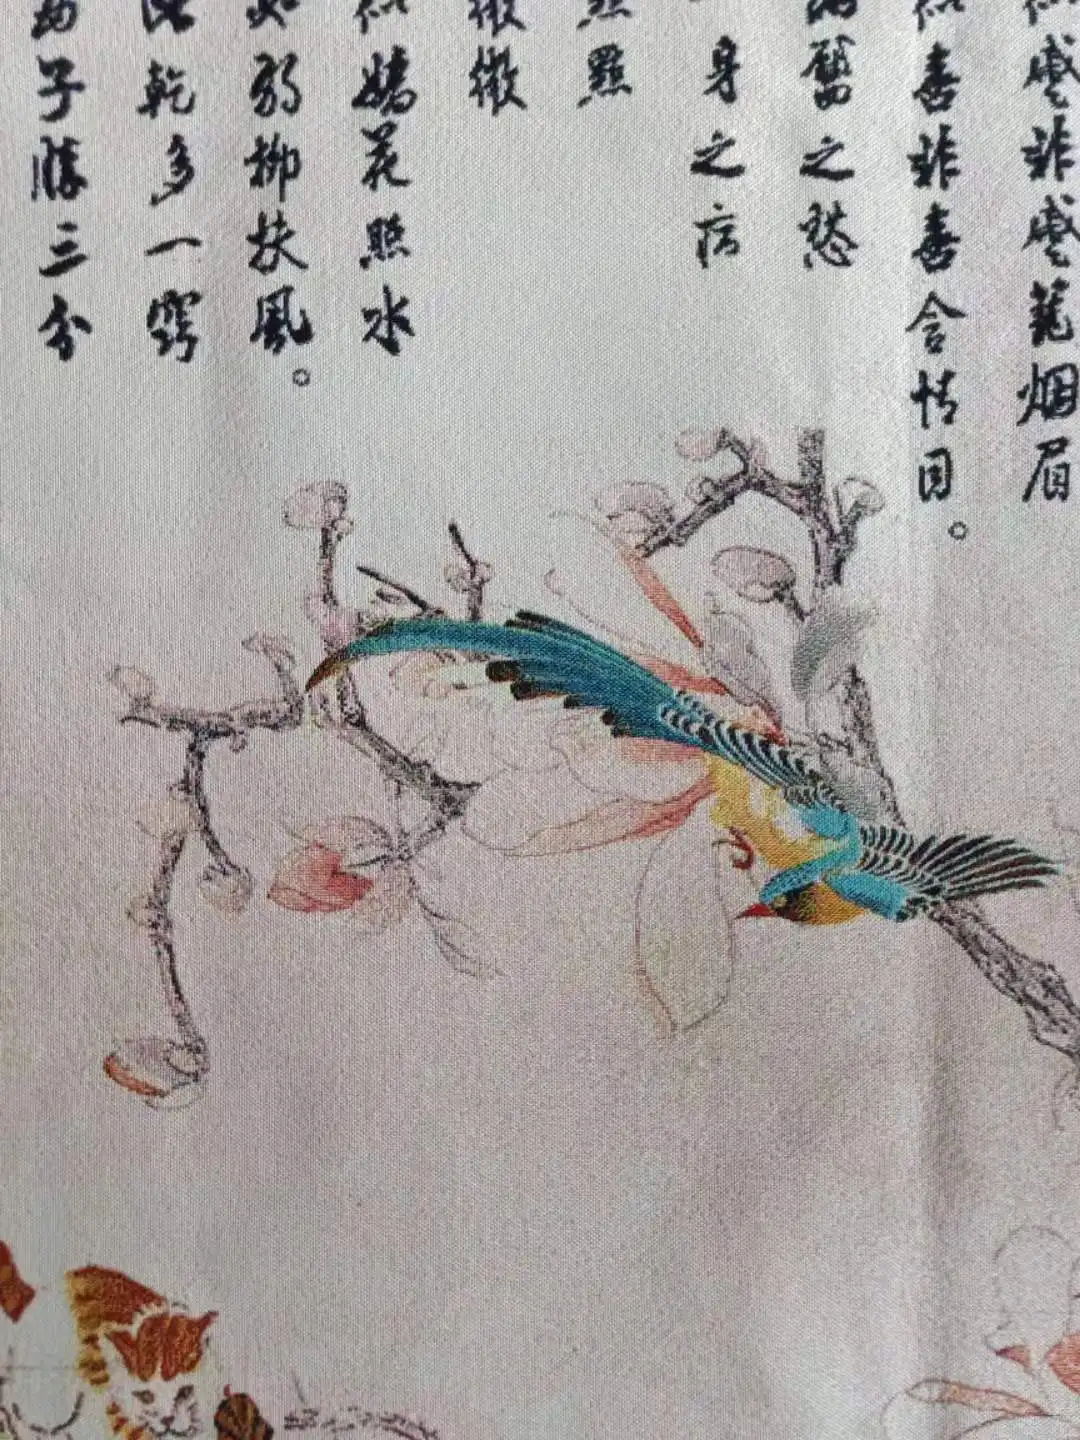 似蹙非蹙籠烟眉
似喜非喜含情目。
兩靨之愁
一身之病
點點
微微
似嬌花照水
如弱柳扶風。
比乾多一竅
西子勝三分